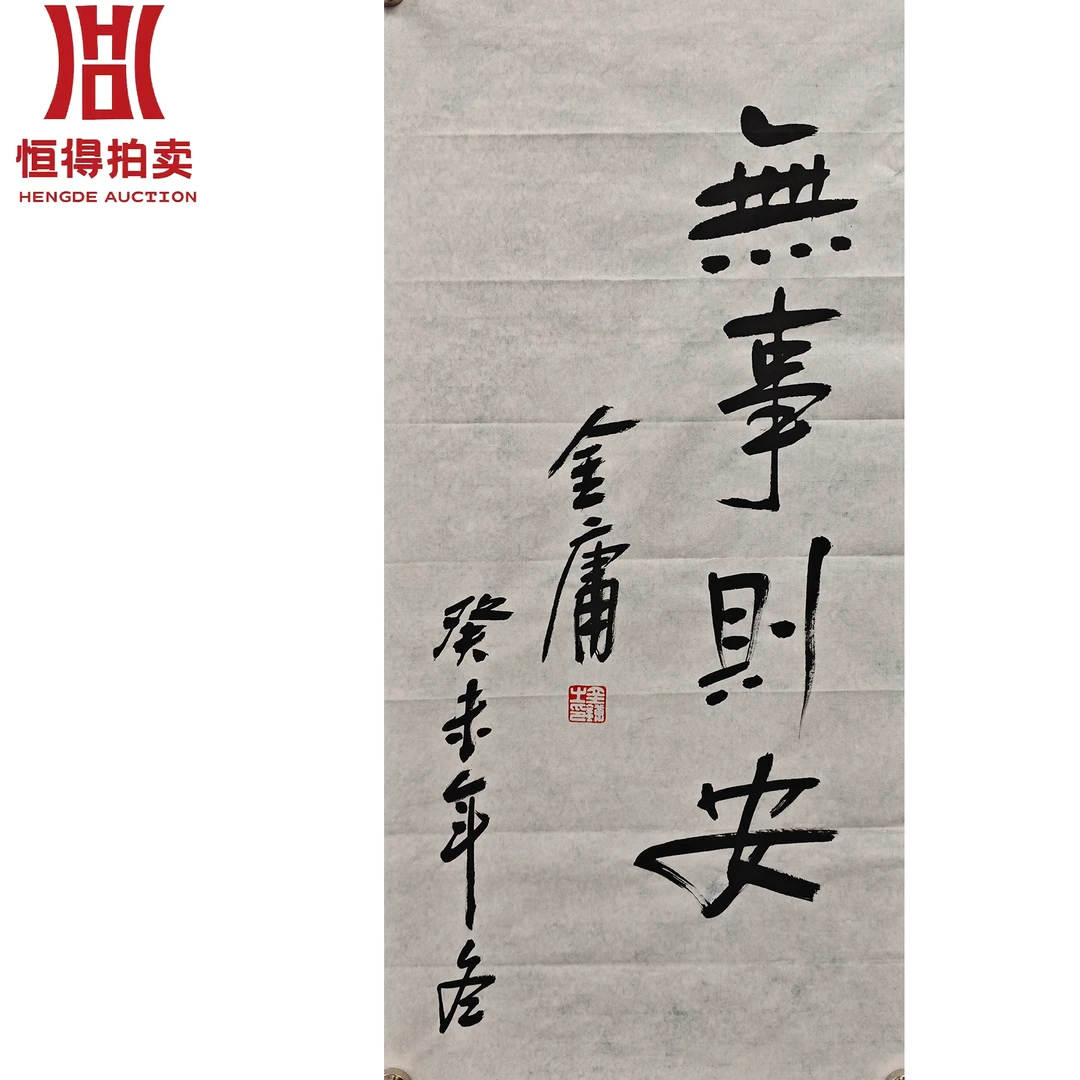 恒得拍卖
HENGDE AUCTION
無事則安
金庸
癸未年冬